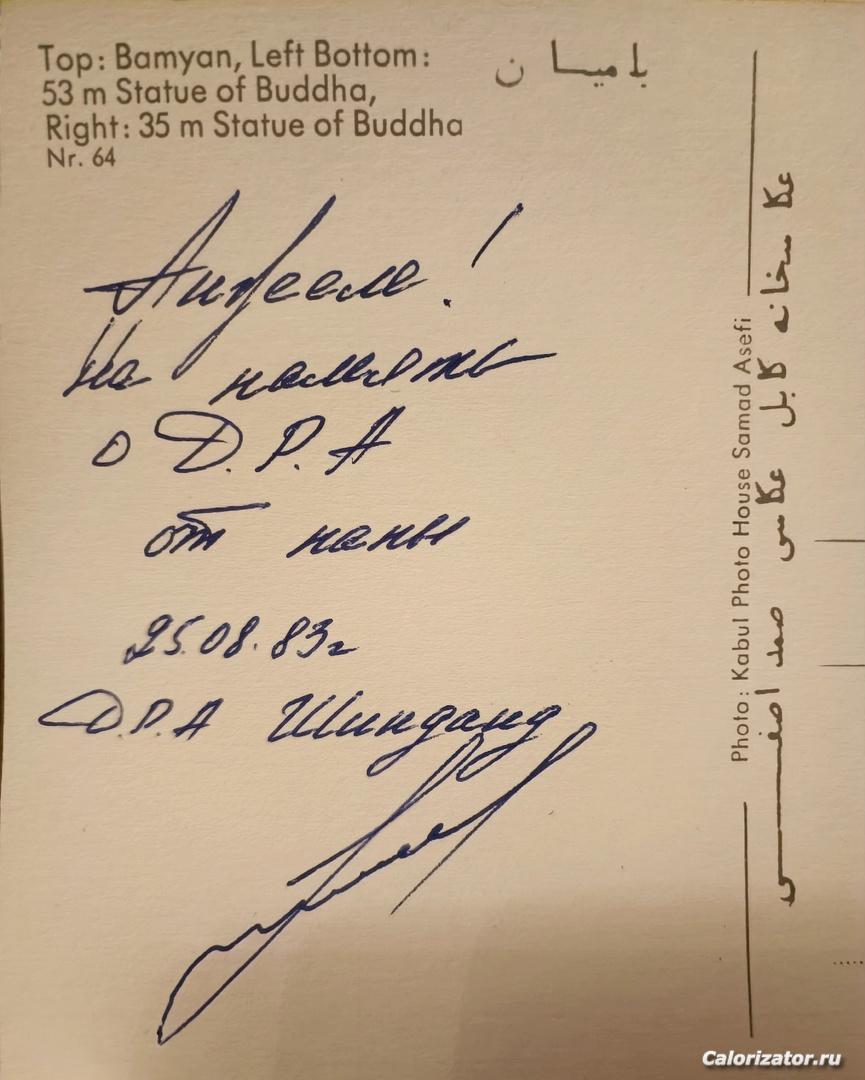 Top: Bamyan, Left Bottom:
53 m Statue of Buddha,
Right: 35 m Statue of Buddha
Nr. 64
بامیان
На память
о Д.Р.А
от папы
25.08.83г
Д.Р.А Шинданд
Photo: Kabul Photo House Samad Asefi
عکاسخانه کابل عکاسی صمد اصفی
Calorizator.ru